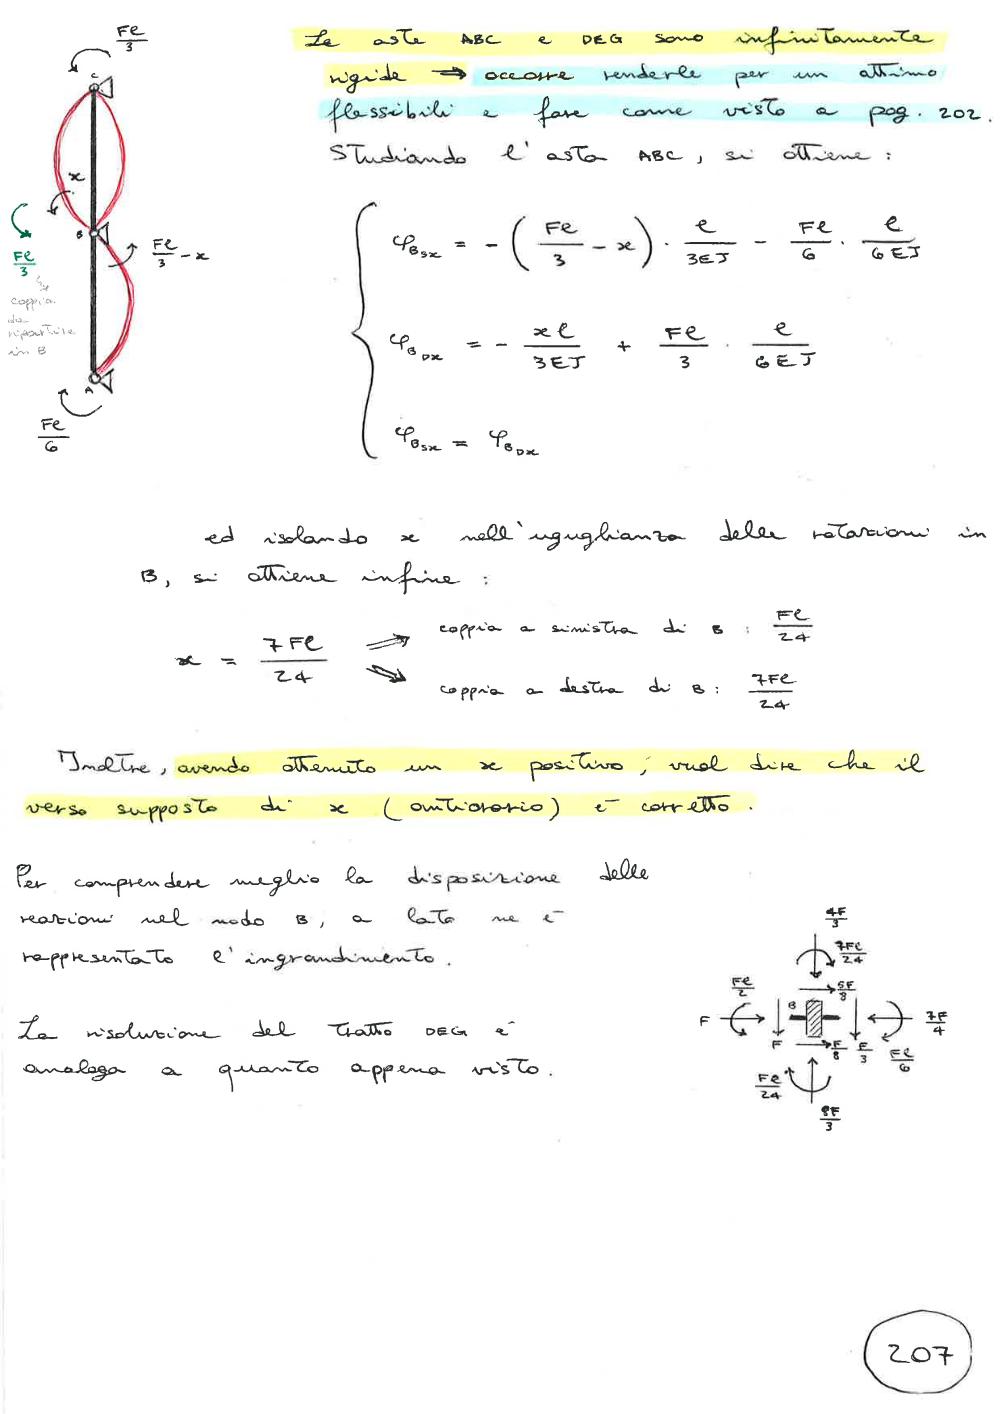 Le aste ABC e DEG sono infinitamente
rigide → occorre renderle per un attimo
flessibili e fare come visto a pag. 202.
Studiando l'asta ABC, si ottiene:
Fl/3
C
x
B
Fl/3
Fl/3 - x
coppia
da
ripartire
in B
A
Fl/6
φBsx = - (Fl/3 - x) · l/3EJ - Fl/6 · l/6EJ
φBDx = - xl/3EJ + Fl/3 · l/6EJ
φBsx = φBDx
ed isolando x nell'uguglianza delle rotazioni in
B, si ottiene infine:
x = 7Fl/24
⇒ coppia a sinistra di B: Fl/24
⇒ coppia a destra di B: 7Fl/24
Inoltre, avendo ottenuto un x positivo, vuol dire che il
verso supposto di x (antiorario) è corretto.
Per comprendere meglio la disposizione delle
reazioni nel nodo B, a lato ne è
rappresentato l'ingrandimento.
La risoluzione del tratto DEG è
analoga a quanto appena visto.
4F/3
7Fl/24
Fl/2
B
5F/8
F
7F/4
F
F/8
F/3
Fl/6
Fl/24
8F/3
207